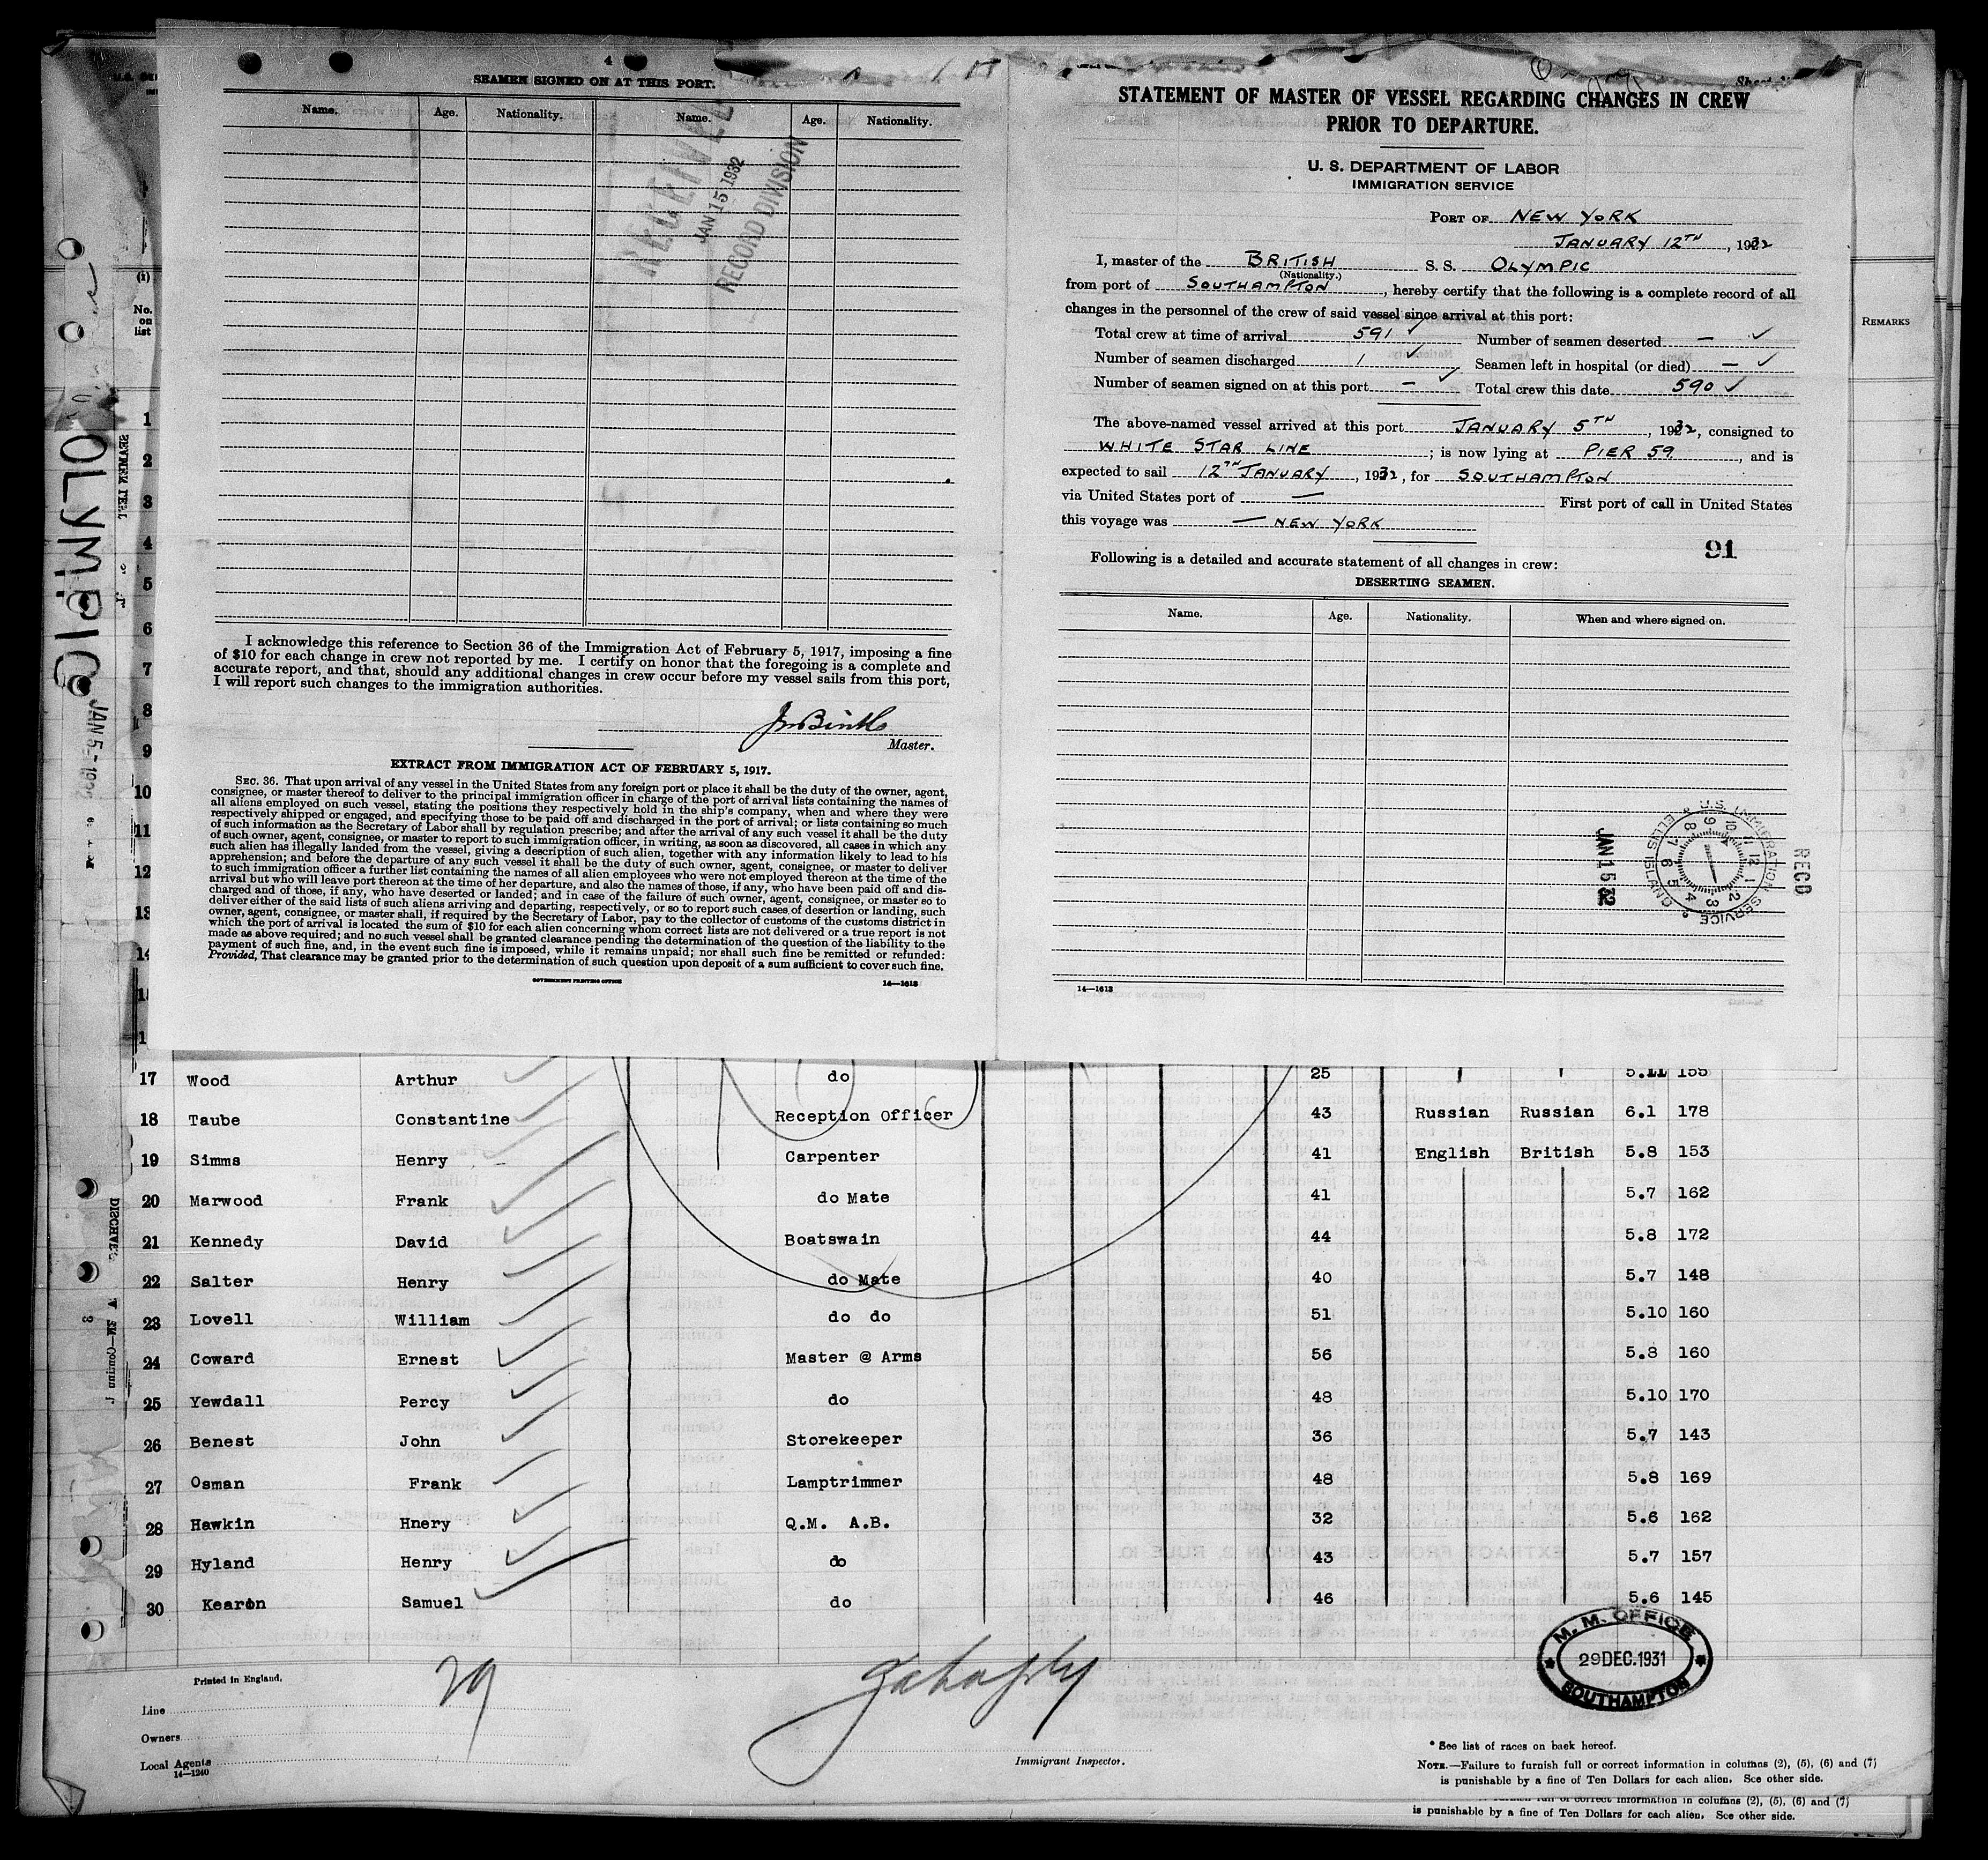 4
SEAMEN SIGNED ON AT THIS PORT.
Name. Age. Nationality. Name. Age. Nationality.
RECEIVED
JAN 15 1932
RECORD DIVISION
I acknowledge this reference to Section 36 of the Immigration Act of February 5, 1917, imposing a fine
of $10 for each change in crew not reported by me. I certify on honor that the foregoing is a complete and
accurate report, and that, should any additional changes in crew occur before my vessel sails from this port,
I will report such changes to the immigration authorities.
Master.
EXTRACT FROM IMMIGRATION ACT OF FEBRUARY 5, 1917.
SEC. 36. That upon arrival of any vessel in the United States from any foreign port or place it shall be the duty of the owner, agent,
consignee, or master thereof to deliver to the principal immigration officer in charge of the port of arrival lists containing the names of
all aliens employed on such vessel, stating the positions they respectively hold in the ship's company, when and where they were
respectively shipped or engaged, and specifying those to be paid off and discharged in the port of arrival; or lists containing so much
of such information as the Secretary of Labor shall by regulation prescribe; and after the arrival of any such vessel it shall be the duty
of such owner, agent, consignee, or master to report to such immigration officer, in writing, as soon as discovered, all cases in which any
such alien has illegally landed from the vessel, giving a description of such alien, together with any information likely to lead to his
apprehension; and before the departure of any such vessel it shall be the duty of such owner, agent, consignee, or master to deliver
to such immigration officer a further list containing the names of all alien employees who were not employed thereon at the time of the
arrival but who will leave port thereon at the time of her departure, and also the names of those, if any, who have been paid off and dis-
charged and of those, if any, who have deserted or landed; and in case of the failure of such owner, agent, consignee, or master so to
deliver either of the said lists of such aliens arriving and departing, respectively, or so to report such cases of desertion or landing, such
owner, agent, consignee, or master shall, if required by the Secretary of Labor, pay to the collector of customs of the customs district in
which the port of arrival is located the sum of $10 for each alien concerning whom correct lists are not delivered or a true report is not
made as above required; and no such vessel shall be granted clearance pending the determination of the question of the liability to the
payment of such fine, and, in the event such fine is imposed, while it remains unpaid; nor shall such fine be remitted or refunded:
Provided, That clearance may be granted prior to the determination of such question upon deposit of a sum sufficient to cover such fine.
GOVERNMENT PRINTING OFFICE 14—1613
STATEMENT OF MASTER OF VESSEL REGARDING CHANGES IN CREW
PRIOR TO DEPARTURE.
U. S. DEPARTMENT OF LABOR
IMMIGRATION SERVICE
PORT OF NEW YORK
JANUARY 12TH, 1932
I, master of the BRITISH S. S. OLYMPIC
(Nationality.)
from port of SOUTHAMPTON, hereby certify that the following is a complete record of all
changes in the personnel of the crew of said vessel since arrival at this port:
Total crew at time of arrival 591 Number of seamen deserted —
Number of seamen discharged 1 Seamen left in hospital (or died) —
Number of seamen signed on at this port — Total crew this date 590
The above-named vessel arrived at this port JANUARY 5TH, 1932, consigned to
WHITE STAR LINE; is now lying at PIER 59, and is
expected to sail 12TH JANUARY, 1932, for SOUTHAMPTON
via United States port of — First port of call in United States
this voyage was — NEW YORK
91
Following is a detailed and accurate statement of all changes in crew:
DESERTING SEAMEN.
Name. Age. Nationality. When and where signed on.
JAN 15 32
U.S. IMMIGRATION SERVICE
ELLIS ISLAND
RECD
14—1613
OLYMPIC
JAN 5-
(1)
No. on list
REMARKS
1
2
3
4
5
6
7
8
9
10
11
12
13
14
17 Wood Arthur do 25 5.11 155
18 Taube Constantine Reception Officer 43 Russian Russian 6.1 178
19 Simms Henry Carpenter 41 English British 5.8 153
20 Marwood Frank do Mate 41 5.7 162
21 Kennedy David Boatswain 44 5.8 172
22 Salter Henry do Mate 40 5.7 148
23 Lovell William do do 51 5.10 160
24 Coward Ernest Master @ Arms 56 5.8 160
25 Yewdall Percy do 48 5.10 170
26 Benest John Storekeeper 36 5.7 143
27 Osman Frank Lamptrimmer 48 5.8 169
28 Hawkin Hnery Q.M. A.B. 32 5.6 162
29 Hyland Henry do 43 5.7 157
30 Kearon Samuel do 46 5.6 145
M. M. OFFICE
29 DEC. 1931
SOUTHAMPTON
Printed in England.
29
Line
Owners
Local Agents
14—1240
Immigrant Inspector.
* See list of races on back hereof.
NOTE.—Failure to furnish full or correct information in columns (2), (5), (6) and (7)
is punishable by a fine of Ten Dollars for each alien. See other side.
is punishable by a fine of Ten Dollars for each alien. See other side.